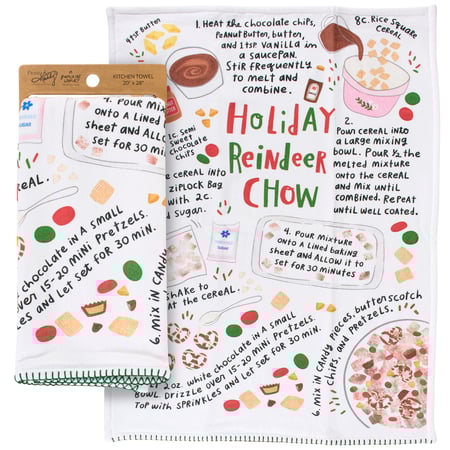 KITCHEN TOWEL
20" x 28"
4. Pour Mix
onto a Lined
sheet and Allow
set for 30 min
SUGAR
EREAL.
chocolate in a small
over 15-20 mini Pretzels.
s and let set for 30 min.
6. Mix in Candy
4TSP Butter
1. Heat the chocolate chips,
Peanut Butter, butter,
and 1tsp Vanilla in
a saucepan.
Stir frequently
to melt and
combine.
8c. Rice Square
Cereal
1c. Semi
Sweet
Chocolate
Chips
Holiday
Reindeer
Chow
2.
Pour cereal into
a large mixing
bowl. Pour ½ the
melted mixture
onto the cereal
and mix until
combined. Repeat
until well coated.
into
Ziplock Bag
with 2c.
d sugar.
SUGAR
4. Pour mixture
onto a lined baking
sheet and Allow it to
set for 30 minutes
Shake to
at the cereal.
2oz. white chocolate in a small
bowl. Drizzle over 15-20 mini Pretzels.
Top with sprinkles and let set for 30 min.
6. Mix in Candy pieces, butterscotch
chips, and Pretzels.